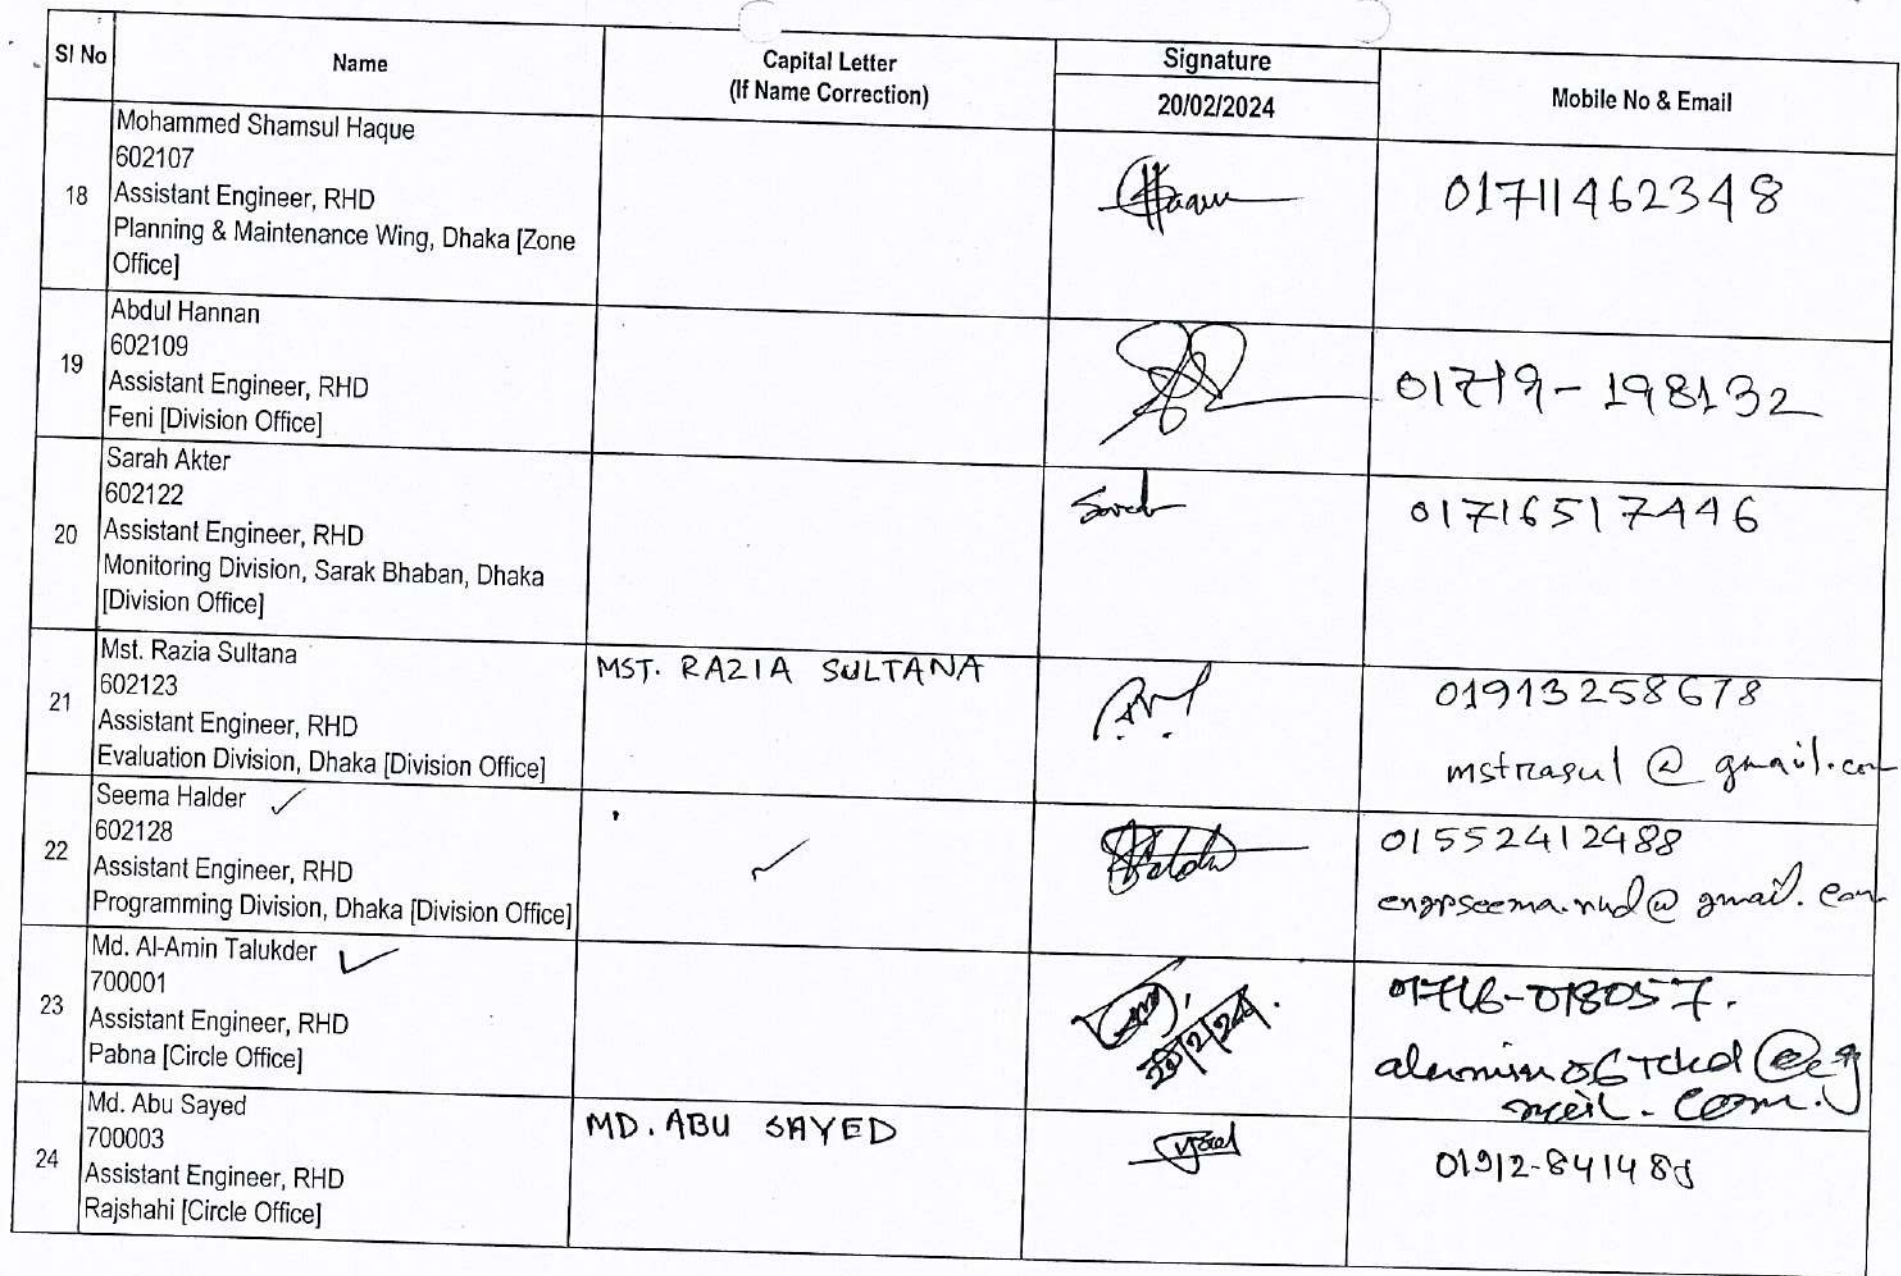 Sl No
Name
Capital Letter
(If Name Correction)
Signature
20/02/2024
Mobile No & Email
18
Mohammed Shamsul Haque
602107
Assistant Engineer, RHD
Planning & Maintenance Wing, Dhaka [Zone
Office]
Haque
01711462348
19
Abdul Hannan
602109
Assistant Engineer, RHD
Feni [Division Office]
01719-198132
20
Sarah Akter
602122
Assistant Engineer, RHD
Monitoring Division, Sarak Bhaban, Dhaka
[Division Office]
Sarah
01716517446
21
Mst. Razia Sultana
602123
Assistant Engineer, RHD
Evaluation Division, Dhaka [Division Office]
MST. RAZIA SULTANA
01913258678
mstrasul@gmail.com
22
Seema Halder ✓
602128
Assistant Engineer, RHD
Programming Division, Dhaka [Division Office]
✓
01552412488
23
Md. Al-Amin Talukder ✓
700001
Assistant Engineer, RHD
Pabna [Circle Office]
24
Md. Abu Sayed
700003
Assistant Engineer, RHD
Rajshahi [Circle Office]
MD. ABU SAYED